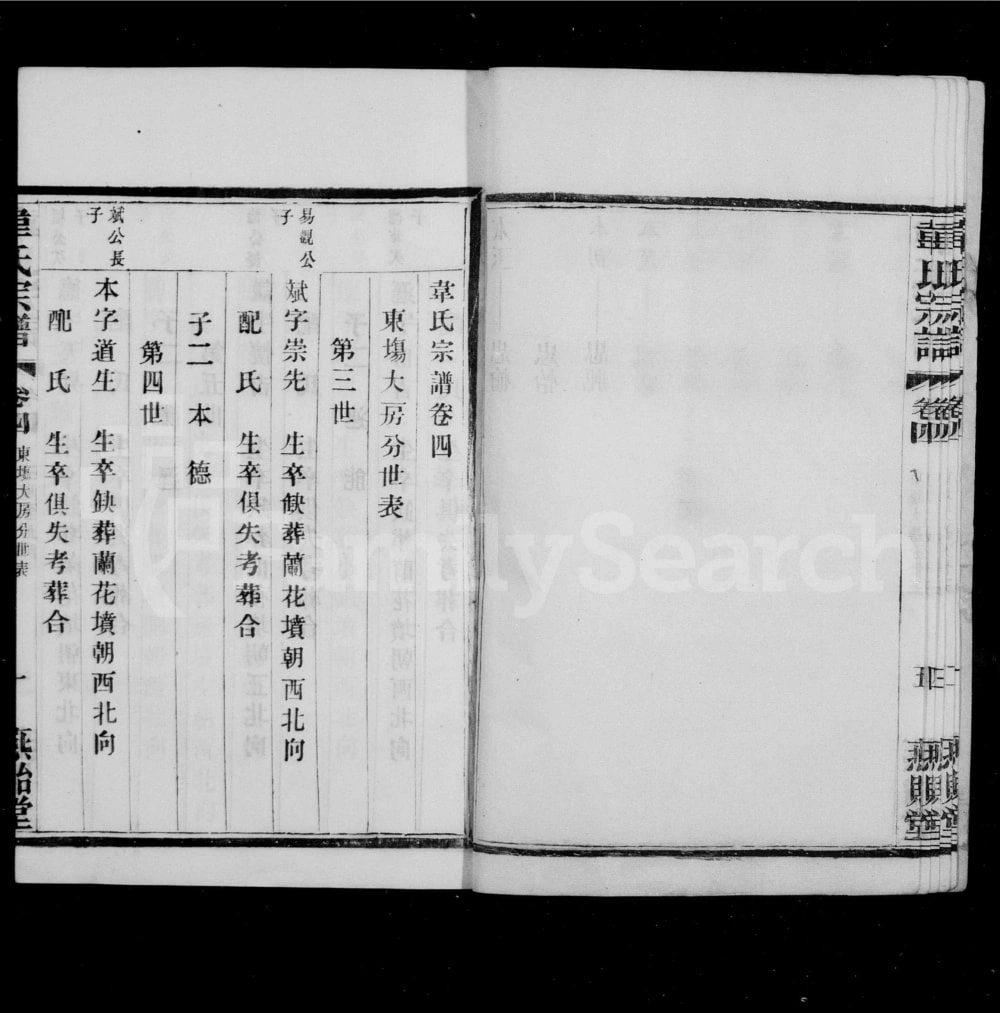 韋氏宗譜
卷四
五
韋氏宗譜卷四
東塲大房分世表
第三世
易觀公子
斌字崇先 生卒缺葬蘭花墳朝西北向
配 氏 生卒俱失考葬合
子二 本 德
第四世
斌公長子
本字道生 生卒缺葬蘭花墳朝西北向
配 氏 生卒俱失考葬合
韋氏宗譜
卷四
東塲大房分世表
一
FamilySearch